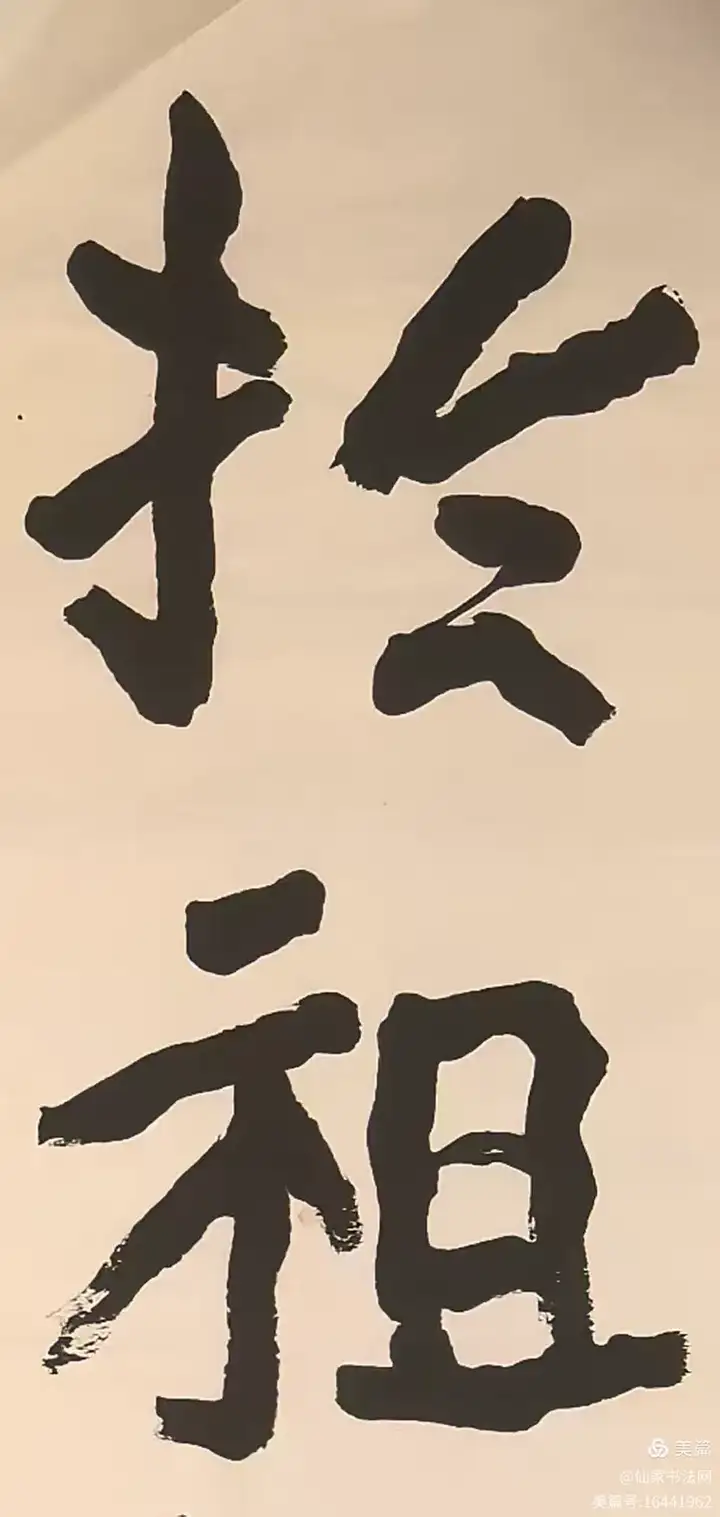 扵
祖
美篇
@仙家书法网
美篇号:16441962